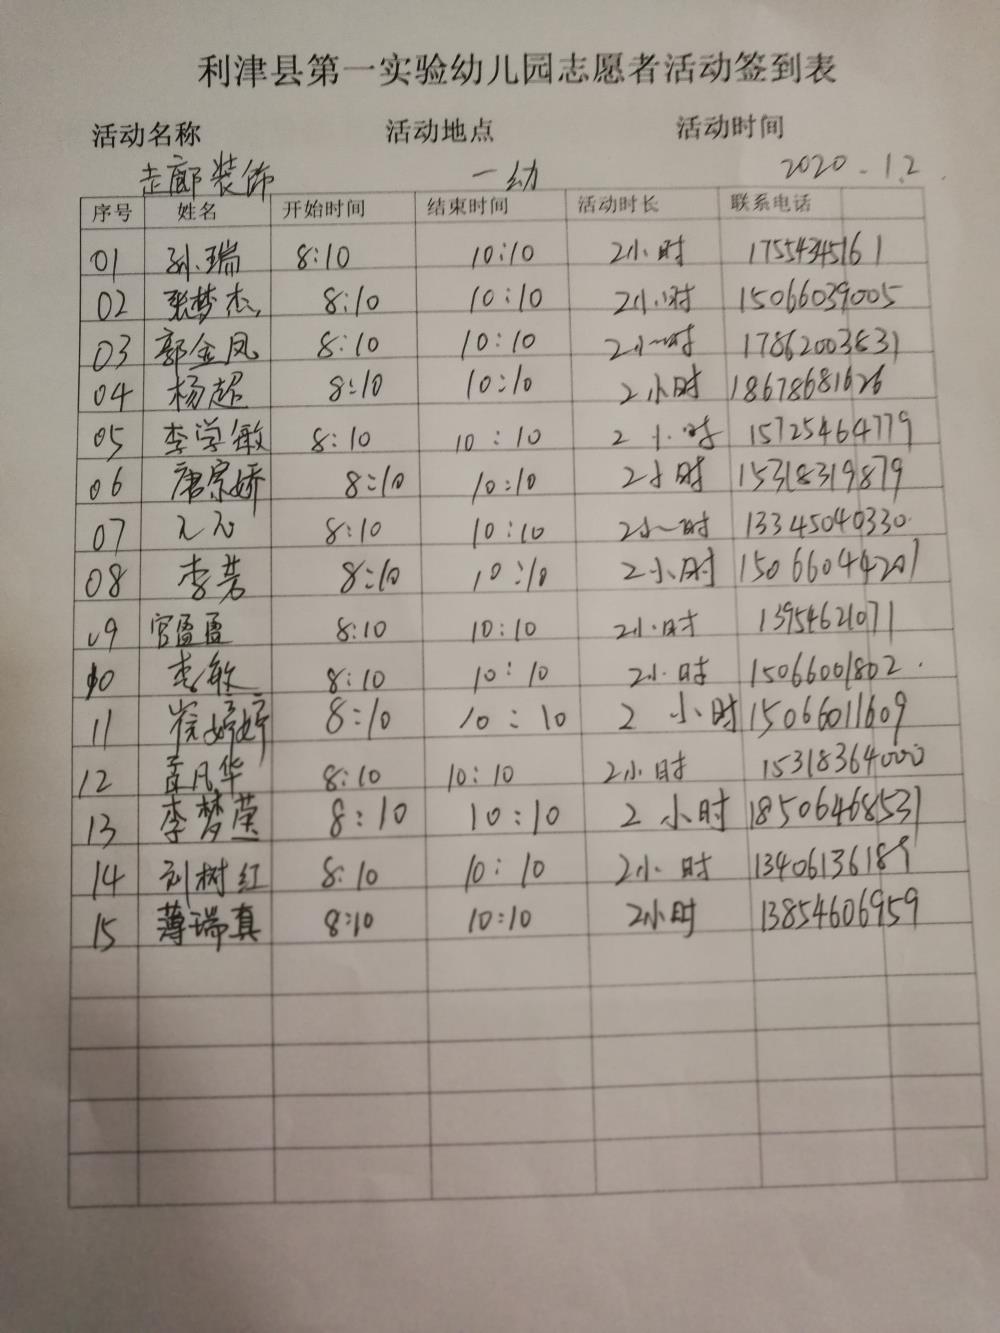 利津县第一实验幼儿园志愿者活动签到表
活动名称 活动地点 活动时间
走廊装饰 一幼 2020.1.2
序号 姓名 开始时间 结束时间 活动时长 联系电话
01 孙瑞 8:10 10:10 2小时 17554345161
02 张梦杰 8:10 10:10 2小时 15066039005
03 郭金凤 8:10 10:10 2小时 17862003831
04 杨超 8:10 10:10 2小时 18678681626
05 李学敏 8:10 10:10 2小时 15725464779
06 唐宗娇 8:10 10:10 2小时 15318319879
07 8:10 10:10 2小时 13345040330
08 李芳 8:10 10:10 2小时 15066044201
09 官盈盈 8:10 10:10 2小时 13954621071
10 李敏 8:10 10:10 2小时 15066001802
11 崔婷婷 8:10 10:10 2小时 15066011609
12 凡华 8:10 10:10 2小时 15318364000
13 李梦莹 8:10 10:10 2小时 18506468531
14 刘树红 8:10 10:10 2小时 13406136189
15 薄瑞真 8:10 10:10 2小时 13854606959